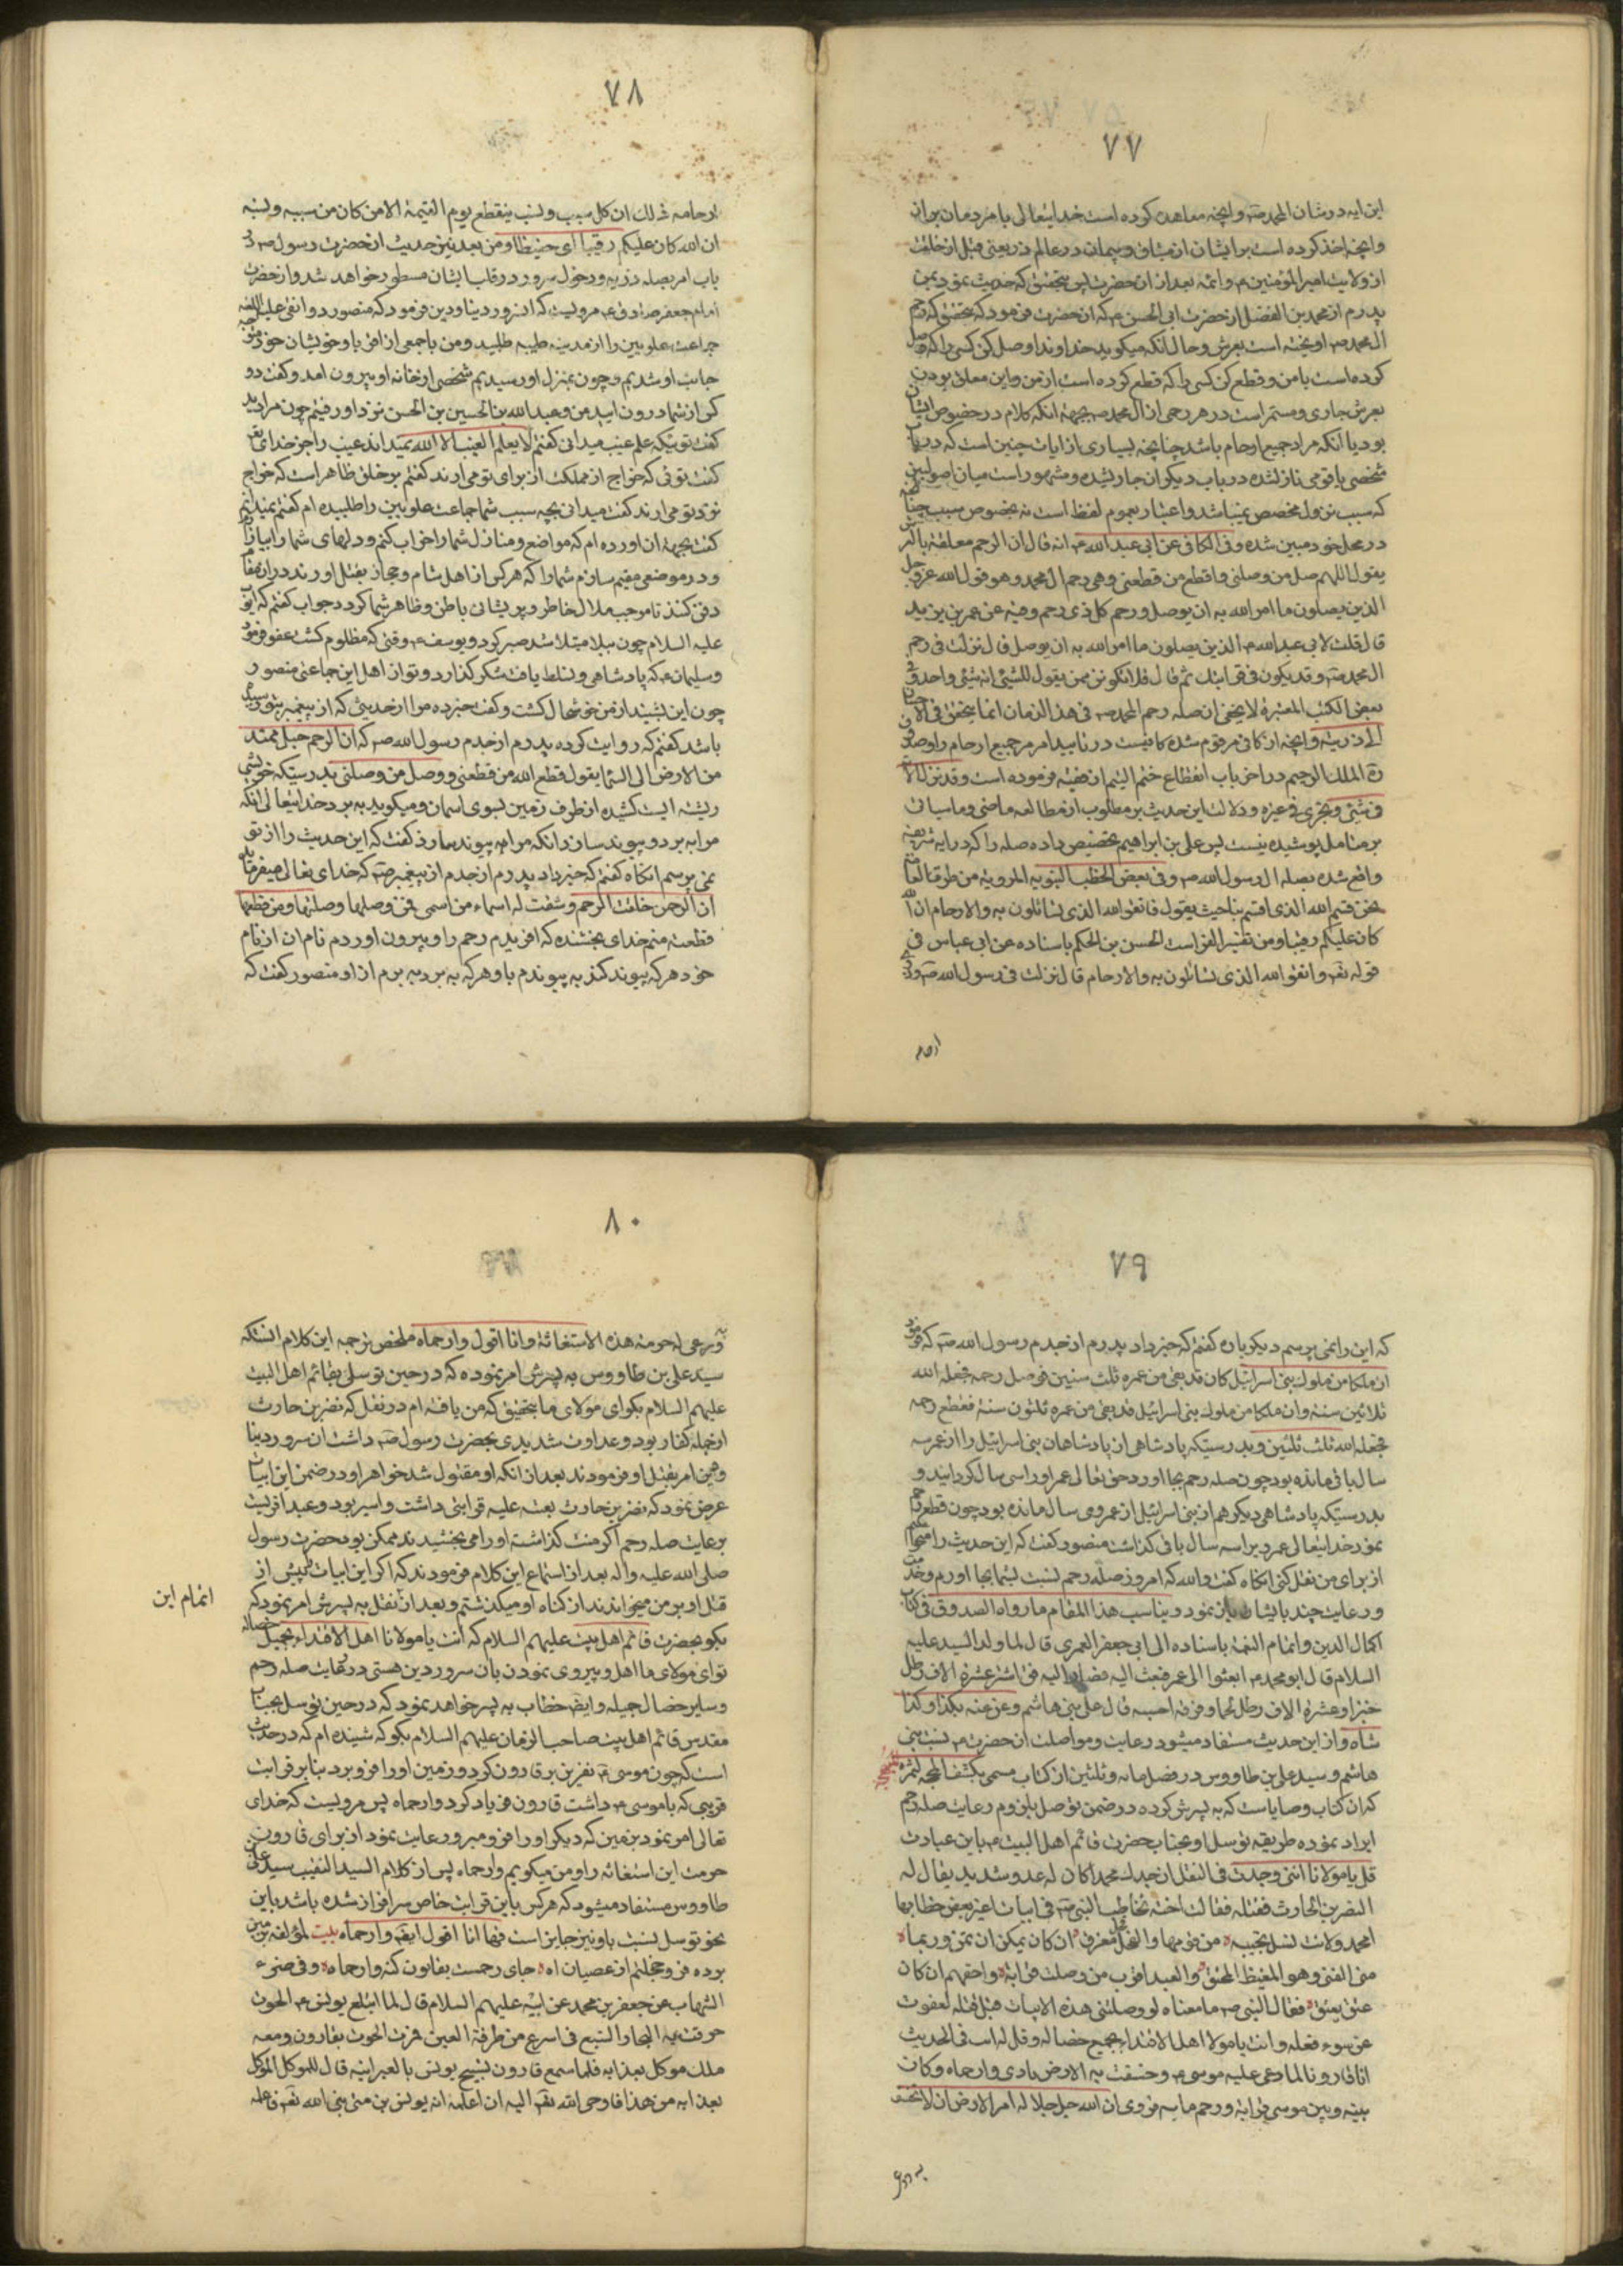 ٧٧
این ایه در شان ال محمد ص و انچه معاهده کرده است خدایتعالی با مردمان بران
و انچه اخذ کرده است بر ایشان از میثاق و پیمان در عالم ذر یعنی قبل از خلقت
از ولایت امیر المؤمنین ع و ائمه بعد از ان حضرت پس بتحقیق که حدیث نمود بمن
پدرم از محمد بن الفضل از حضرت ابی الحسن ع که ان حضرت فرمود که بتحقیق که رحم
ال محمد ص اویخته است بعرش و حال انکه میکوید خداوندا وصل کن کسی را که وصل
کرده است با من و قطع کن کسی را که قطع کرده است از من و این معلق بودن
بعرش جاری و مستمر است در هر رحمی از ال محمد ص بجهة انکه کلام در خصوص ایشان
بود یا انکه مراد جمیع ارحام باشد چنانچه بسیاری از ایات چنین است که در باب
شخصی یا قومی نازل شده در باب دیکران جاریشده و مشهور است میان اصولیین
که سبب نزول مخصص نمیباشد و اعتبار بعموم لفظ است نه بخصوص سبب چنانچه
در محل خود مبین شده و فی الکافی عن ابی عبد الله ع انه قال ان الرحم معلقة بالعرش
یقول اللهم صل من وصلنی و اقطع من قطعنی و هی رحم ال محمد و هو قول الله عز و جل
الذین یصلون ما امر الله به ان یوصل و رحم کل ذی رحم و فیه عن عمر بن یزید
قال قلت لابی عبد الله ع الذین یصلون ما امر الله به ان یوصل قال نزلت فی رحم
ال محمد ص و قد یکون فی قرابتک ثم قال فلا تکونن ممن یقول للشیئ انه شیئ واحد و فی
بعض الکتب المعتبرة لا یخفی ان صله رحم ال محمد ص فی هذا الزمان انما یتحقق فی الاحسان
الی ذریته و انچه از کافی مرقوم شده کافیست در تایید امر مرجمیع ارحام را و صدو
ق الملک الرحیم در اخر باب انقطاع ختم الیتیم از فقیه فرموده است و قد تنزل الایة
فی شئی و تجری فی غیره و دلالت این حدیث بر مطلوب از مطالعه ما مضی و ما سیاتی
بر متامل پوشیده نیست پس علی بن ابراهیم تخصیص داده صله را که در ایه شریفه
واقع شده بصله ال رسول الله ص و فی بعض الخطب النبویه المرویة من طرقنا العامة
نحن قسم الله الذی اقسم بنا حیث یقول فاتقوا الله الذی تسائلون به و الارحام ان الله
کان علیکم رقیبا و من تفسیر الفرات الحسن بن الحکم باسناده عن ابی عباس فی
قوله تعه و اتقوا الله الذی تسائلون به و الارحام قال نزلت فی رسول الله ص و ذوی
ارحامه
٧٨
ارحامه ذلک ان کل سبب و نسب ینقطع یوم القیمة الا من کان من سببه و نسبه
ان الله کان علیکم رقیبا ای حفیظا و من بعد نیز حدیث از حضرت رسول ص در
باب امر بصله ذریه و دخول سرور در قلب ایشان مسطور خواهد شد و از حضرت
امام جعفر صادق ع مرویست که ان سرور دنیا و دین فرمود که منصور دوانقی علیه اللعنه
جماعت علویین را از مدینه طیبه طلبید و من با جمعی از اقربا و خویشان خود متوجه
جانب او شدیم و چون بمنزل او رسیدیم شخصی از خانه او بیرون امد و گفت دو
کس از شما درون ایید من و عبد الله بن الحسین بن الحسن نزد او رفتیم چون مرا دید
گفت توییکه علم غیب میدانی گفتم لا یعلم الغیب الا الله نمیداند غیب را جز خدای تعه
گفت توئی که خراج از مملکت از برای تو می ارند گفتم بر خلق ظاهر است که خراج
نزد تو می ارند گفت میدانی بچه سبب شما جماعت علویین را طلبیده ام گفتم نمیدانم
گفت بجهة ان اورده ام که مواضع و منازل شما را خراب کنم و دلهای شما را بیازارم
و در موضعی مقیم سازم شما را که هر کس از اهل شام و حجاز بقتل اورند در ان مقام
دفن کنند تا موجب ملال خاطر و پریشانی باطن و ظاهر شما کردد جواب گفتم که ایوب
علیه السلام چون ببلا مبتلا شد صبر کرد و یوسف ع وقتی که مظلوم گشت عفو فرمود
و سلیمان ع که پادشاهی و تسلط یافت شکر گذارد و تو از اهل این جماعتی منصور
چون این بشنید از من خوشحال گشت و گفت خبر ده مرا از حدیثی که از پیغمبر بتو رسیده
باشد گفتم که روایت کرده پدرم از جدم رسول الله ص که ان الرحم حبل ممتد
من الارض الی السما یقول قطع الله من قطعنی و وصل من وصلنی بدرستیکه خویشی
ریشته ایست کشیده از طرف زمین بسوی اسمان و میکوید به برد خدایتعالی انکه
مرا به برد و پیوند سازد انکه مرا به پیوند سازد گفت که این حدیث را از تو
نمی پرسم انکاه گفتم که خبر داد پدرم از جدم از پیغمبر ص که خدای تعالی میفرماید
ان الرحمن خلقت الرحم و شققت له اسماء من اسمی فمن وصلها وصلتها و من قطعها
قطعته منم خدای بخشنده که افریدم رحم را و بیرون اوردم نام ان از نام
خود هر که پیوند کند به پیوندم با و هر که به برد به برم از او منصور گفت که
٧٩
که این را نمی پرسم دیکر باره گفتم که خبر داد پدرم از جدم رسول الله ص که فرمود
ان ملکا من ملوک بنی اسرائیل کان قد بقی من عمره ثلث سنین فوصل رحمه فجعله الله
ثلاثین سنة و ان ملکا من ملوک بنی اسرائیل قد بقی من عمره ثلثون سنة فقطع رحمه
فجعله الله ثلث ثلثین و بدرستیکه پادشاهی از پادشاهان بنی اسرائیل را از عمر سه
سال باقی مانده بود چون صله رحم بجا اورد حق تعالی عمر او را سی سال کردانید و
بدرستیکه پادشاهی دیکر هم از بنی اسرائیل از عمر وی سی سال مانده بود چون قطع رحم
نمود خدایتعالی عمر ویرا سه سال باقی گذاشت منصور گفت که این حدیث را میخواستم
از برای من نقل کنی انکاه گفت والله که امروز صله رحم نسبت بشما بجا اورم و خدمت
و رعایت چند بایشان بان نمود و یناسب هذا المقام ما رواه الصدوق فی کتاب
اکمال الدین و اتمام النعمة باسناده الی ابی جعفر العمری قال لما ولد السید علیه
السلام قال ابو محمد ع ابعثوا الی عمر فبعث الیه فصار الیه فقال اشتر عشرة الاف رطل
خبزا و عشرة الاف رطل لحما و فرقه احسبه قال علی بنی هاشم و عق عنه بکذا و کذا
شاه و از این حدیث مستفاد میشود رعایت و مواصلت ان حضرت ع نسبت ببنی
هاشم و سید علی بن طاووس در فصل مائه و ثلثین از کتاب مسمی بکشف المحجه لثمرة
که ان کتاب وصایاست که به پسرش کرده در ضمن توصل بلزوم رعایت صله رحم
ایراد نموده طریقه توسل او بجناب حضرت قائم اهل البیت ع باین عبارت
قل یا مولانا اننی وجدت فی النقل ان جدک محمدا کان له عدو شدید یقال له
النضر بن الحارث فقتله فقالت اخته تخاطب النبی ص فی ابیات اعتز بعض خطابها
امحمد ولانت نسل نجیبه من قومها و الفحل فحل معرق ان کان یمکن ان تمن و ربما
من الفتی و هو المغیظ المحنق و العبد اقرب من وصلت قرابة و احقهم ان کان
عتق یعتق فقال النبی ص ما معناه لو وصلتنی هذه الابیات قبل قتله لعفوت
عن سوء فعله و انت یا مولا اهل الاقتداء بجمیع خصاله و قل له انت فی الحدیث
ان قارونا لما دعی علیه موسی ع و خسفت به الارض نادی و ارحماه و کان
بینه و بین موسی قرابة و رحم ماسه فروی ان الله جل جلاله امر الارض ان لا تخسف
٨٠
و رعی له حرمة هذه الاستغاثة و انا اقول وا رحماه ملخص ترجمه این کلام انستکه
سید علی بن طاووس به پسرش امر نموده که در حین توسل بقائم اهل البیت
علیهم السلام بکو ای مولای ما بتحقیق که من یافته ام در نقل که نضر بن حارث
از جمله کفار بود و عداوت شدیدی بحضرت رسول ص داشت ان سرور دنیا
و دین امر بقتل او فرمودند بعد از انکه او مقتول شد خواهر او در ضمن این ابیات
عرض نمود که نضر بن حارث بعثه علیه قرابتی داشت و اسیر بود و عبد اقربیت
برعایت صله رحم اگر منت گذاشته او را می بخشیدند ممکن بود حضرت رسول
صلی الله علیه و اله بعد از استماع این کلام فرمودند که اکر این ابیات پیش از
قتل او بر من میخواندند از کناه او میگذشتم و بعد ان نقل به پسرش امر نمود که
بکو بحضرت قائم اهل بیت علیهم السلام که انت یا مولانا اهل الاقتداء بجمیل خصاله
تو ای مولای ما اهل و پیروی نمودن بان سرور دین هستی در رعایت صله رحم
و سایر خصال جمیله و ایضا خطاب به پسر خواهد نمود که در حین توسل بجناب
مقدس قائم اهل بیت صاحب الزمان علیهم السلام بکو که شنیده ام که در حدیث
است که چون موسی ع نفرین بر قارون کرد و زمین او را فرو برد بنا بر قرابت
قریبی که با موسی ع داشت قارون فریاد کرد وا رحماه پس مرویست که خدای
تعالی امر نمود بزمین که دیکر او را فرو مبر و رعایت نمود از برای قارون
حرمت این استغاثه را و من میکویم وا رحماه پس از کلام السید النقیب سید علی
طاووس مستفاد میشود که هر کس باین قرابت خاص سرافراز شده باشد باین
نحو توسل نسبت باو نیز جایز است فها انا اقول ایضه وا رحماه بیت لمؤلفه بن مبین
برده فرو خجلتم از عصیان اه جای رحمست بقانون که وا رحماه و فی ضوء
الشهاب عن جعفر بن محمد عن ابیه علیهم السلام قال لما ابتلع یونس ع الحوت
خرقت به البحار السبع فی اسرع من طرفة العین فمرت الحوت بقارون و معه
ملک موکل بعذابه فلما سمع قارون تسبیح یونس بالعبرانیه قال للموکل الموکل
بعذابه من هذا فاوحی الله تعه الیه ان اعلمه انه یونس بن متی نبی الله تعه فاعلمه
اتمام این